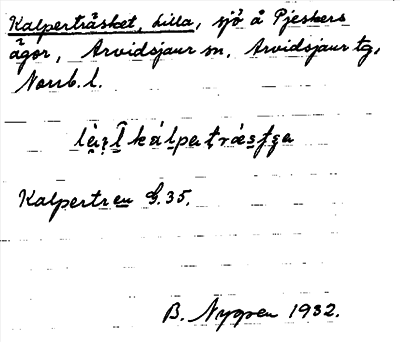 Kalperträsket, Lilla, sjö å Pjeskers
ägor, Arvidsjaur sn, Arvidsjaur tg,
Norrb. l.
Kalpertr en G. 35.
B. Nygren 1932.